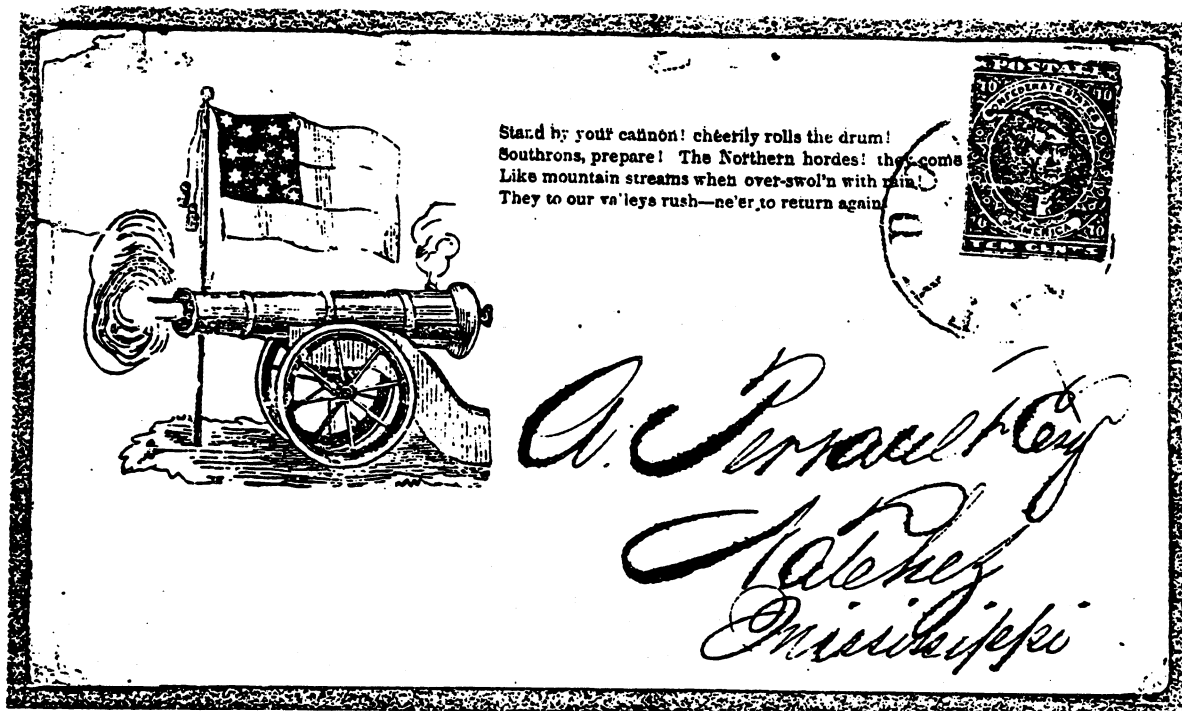 Stand by your cannon! cheerily rolls the drum!
Southrons, prepare! The Northern hordes! they come
Like mountain streams when over-swol'n with rain!
They to our valleys rush—ne'er to return again
POSTAGE
10 10
CONFEDERATE STATES
OF AMERICA
10
TEN CENTS
A. Perrault Esq
Natchez
Mississippi